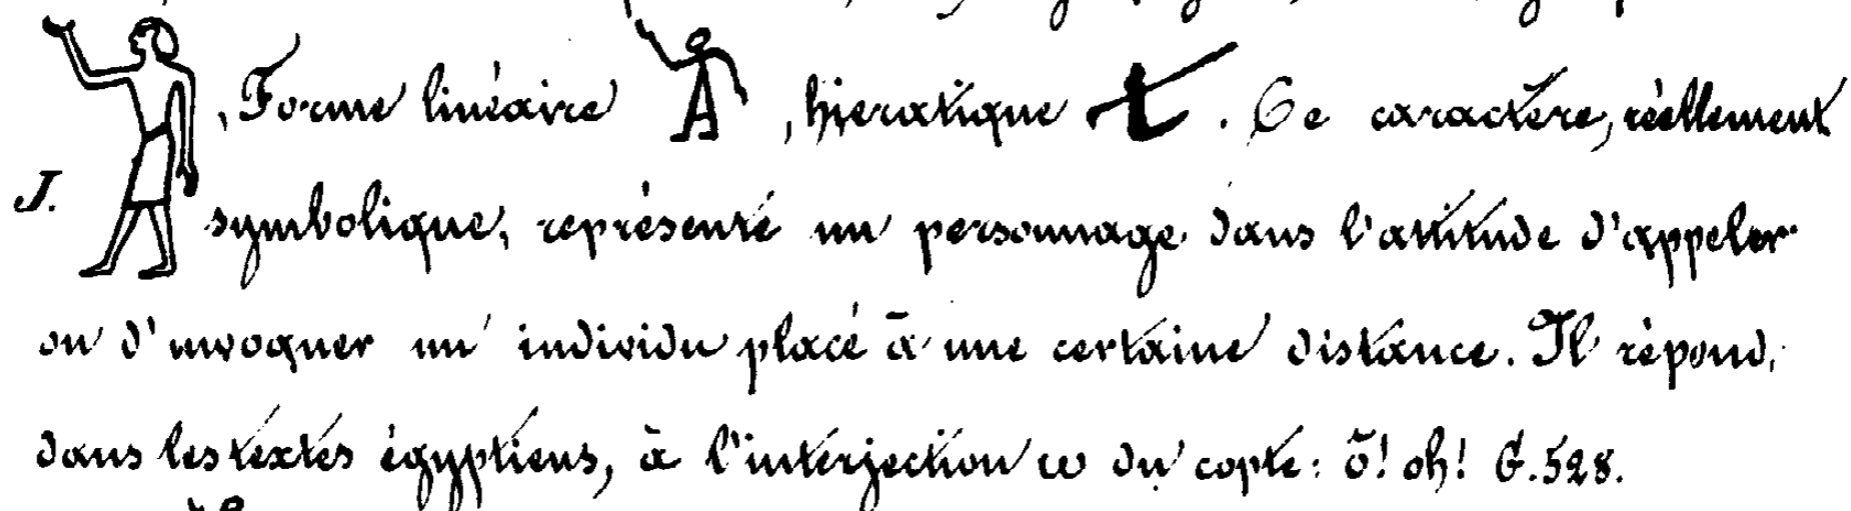 , Forme linéaire , hieratique . Ce caractère, réellement
J. symbolique, représente un personnage dans l'attitude d'appeler
ou d'invoquer un individu placé à une certaine distance. Il répond,
dans les textes égyptiens, à l'interjection ⲱ du copte: ô! oh! G. 528.